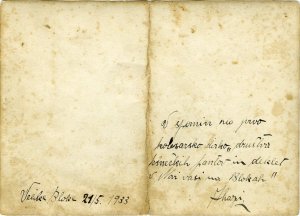 Velike Bloke 21/5. 1933
V spomin na prvo
kolesarsko dirko, društva
kmečkih fantov in deklet
v Novi vasi na Blokah"